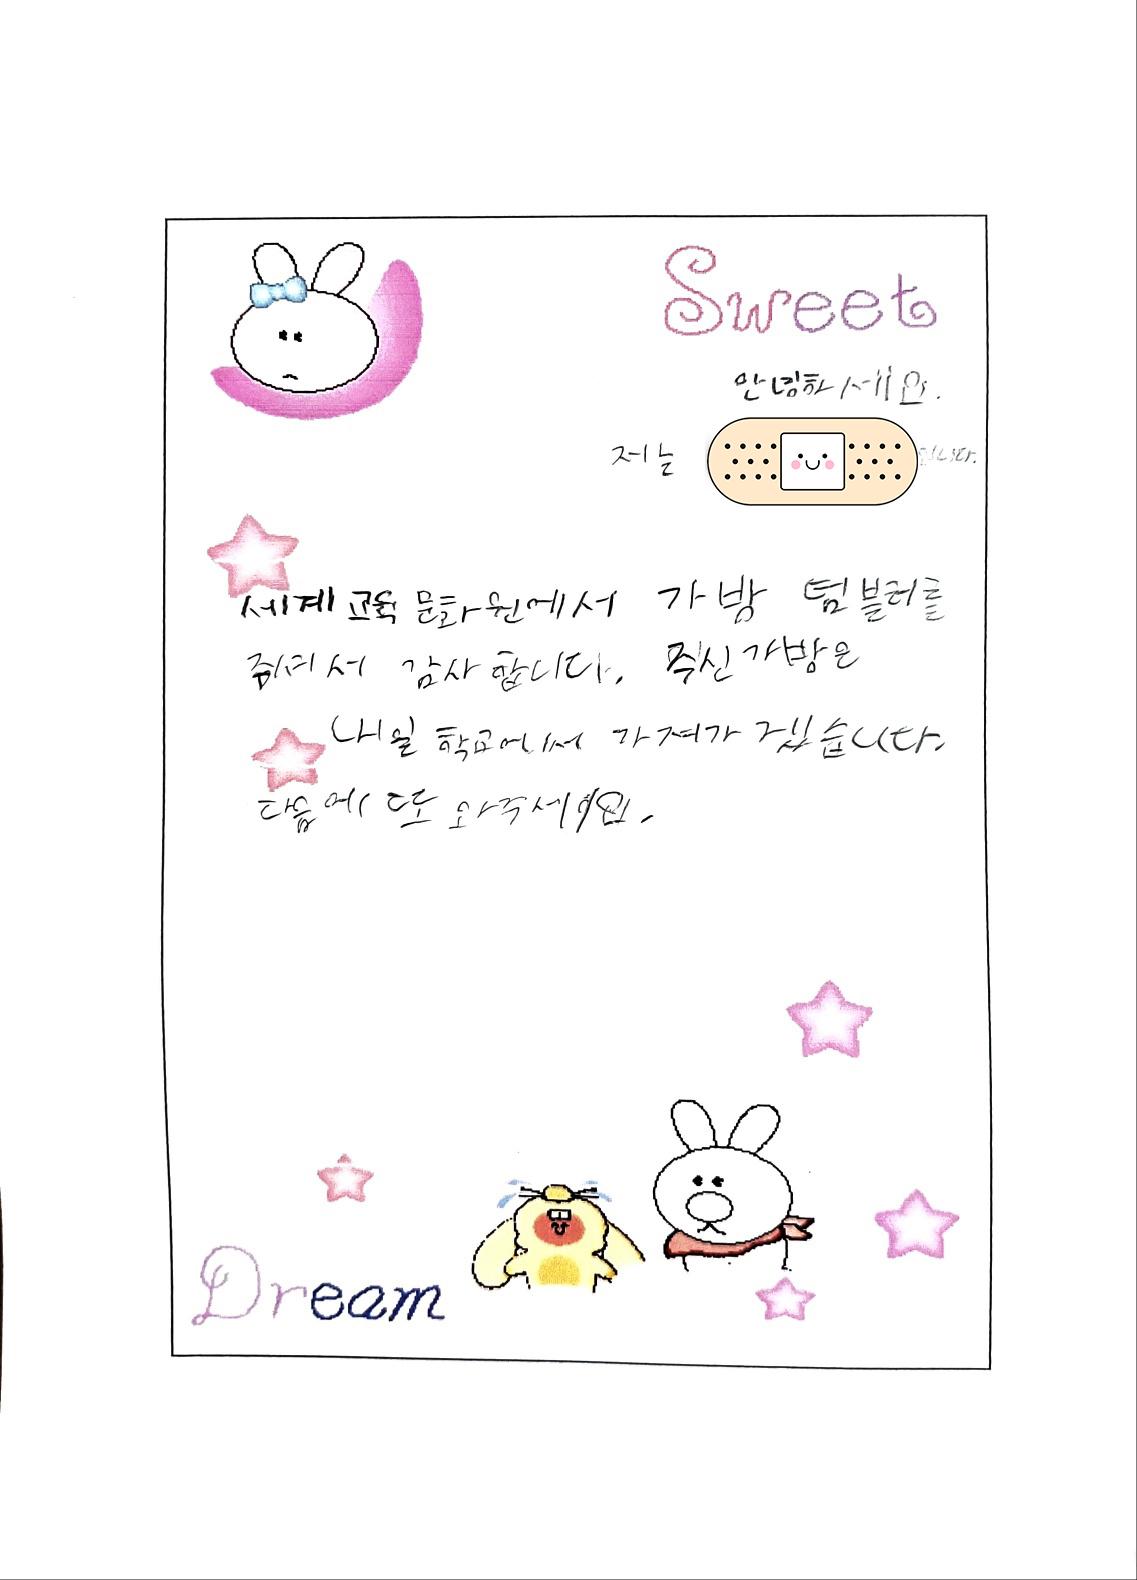 Sweet
안녕하세요.
저는 입니다.
세계교육문화원에서 가방 텀블러를
주셔서 감사합니다. 주신가방은
내일 학교에서 가져가겠습니다.
다음에 또 와주세요.
Dream